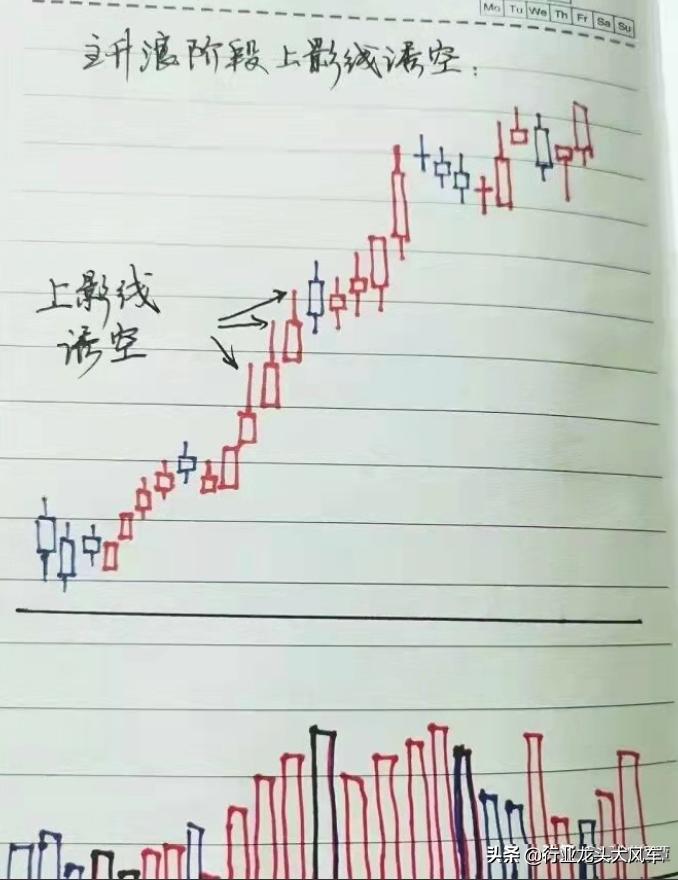 Mo Tu We Th Fr Sa Su
主升浪阶段上影线诱空：
上影线
诱空
头条 @行业龙头大风车